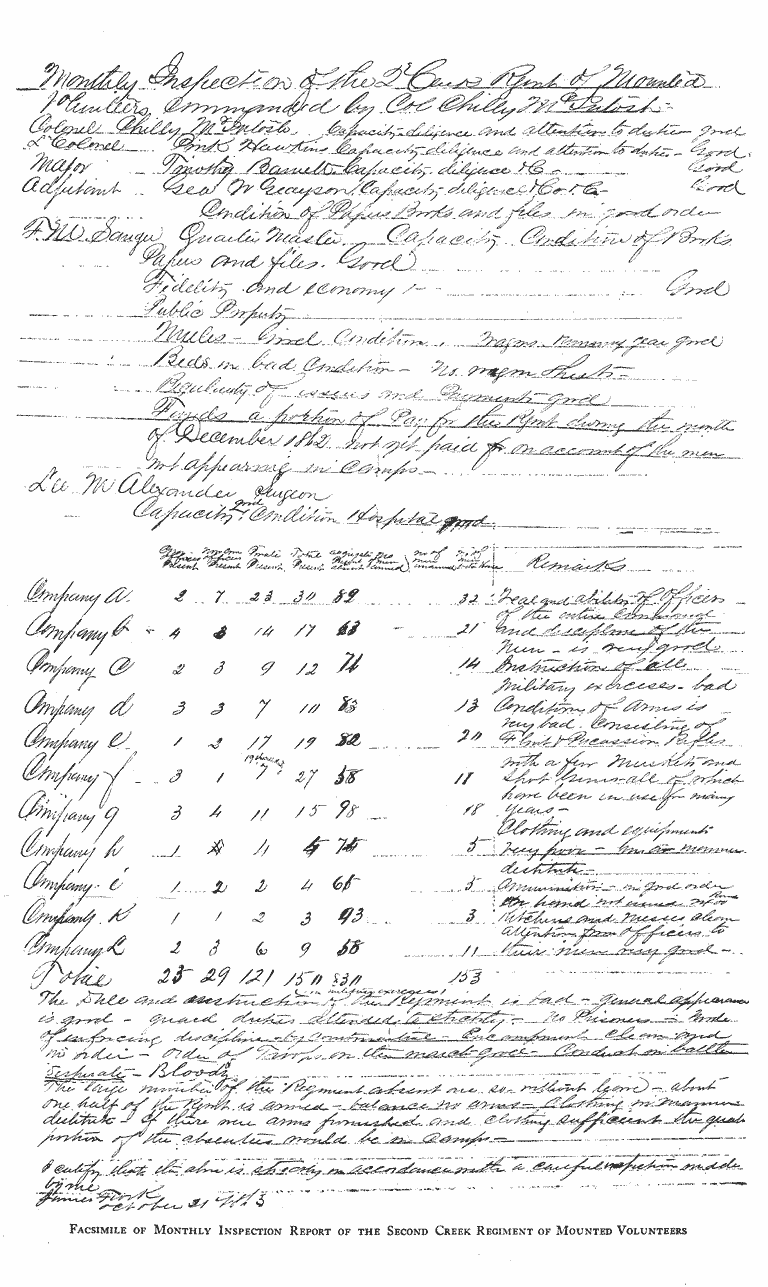 Monthly Inspection of the 2d Creek Rgmt of Mounted
Volunteers Commanded by Col Chilly McIntosh-
Colonel Chilly McIntosh Capacity diligence and attention to duties good
Lt Colonel Pink Hawkins Capacity diligence and attention to duties - Good
Major Timothy Barnett Capacity diligence &C - Good
Adjutant Geo W Grayson, Capacity diligence &C Good
Condition of Papers Books and files in good order
F. M. Sanger Quarter Master Capacity Condition of Books
Papers and files. Good
Fidelity and economy Good
Public Property
Mules - Good Condition, Wagons - Running gear good
Beds in bad Condition - No wagon Sheets -
Regularity of issues and Payments good
Funds a portion of Pay for the Rgmt during the month
of December 1862 not yet paid on account of the men
not appearing in Camps -
M Alexander Surgeon
Capacity good Condition Hospital good
Remarks
Company A. 2 7 23 30 89 32 Zeal and ability of Officers
of the entire Command
Company 4 3 14 17 63 21 and discipline of the
Men - is very good
Company C 2 3 9 12 71 14 Instruction of all
Military exercises - bad
Company d 3 3 7 10 83 13 Condition of Arms is
very bad. Consisting of
Company E. 1 2 17 19 82 20 Flint & Percussion Rifles
with a few Muskets and
Company f 3 1 7 27 58 11 Shot Guns all of which
have been in use for many
Company g 3 4 11 15 98 18 years -
Clothing and equipments
Company h 1 11 5 very poor - manner
destitute -
Company i 1 2 2 4 65 5 Ammunition - in good order
on hand not issued
Company K 1 1 2 3 93 3 Kitchens and Messes
attention from Officers to
Company L 2 3 6 9 58 11 their men very good -
Total 23 29 121 150 830 153
(in military exercises)
The Drill and instruction of this Regiment is bad - general appearance
is good - guard duties attended to strictly - no Prisoners - Mode
of enforcing discipline - by - Encampments clean and
in order - Order of Troops on the march good - Conduct in battle
desperate - Bloody
The large number of the Regiment absent are so without leave - about
one half of the Rgmt is armed - balance no arms - Clothing in manner
destitute - if there were arms furnished and clothing sufficient the great
portion of the absentees would be in Camps -
I certify that the above is strictly in accordance with a careful inspection made
by me
October 21
FACSIMILE OF MONTHLY INSPECTION REPORT OF THE SECOND CREEK REGIMENT OF MOUNTED VOLUNTEERS